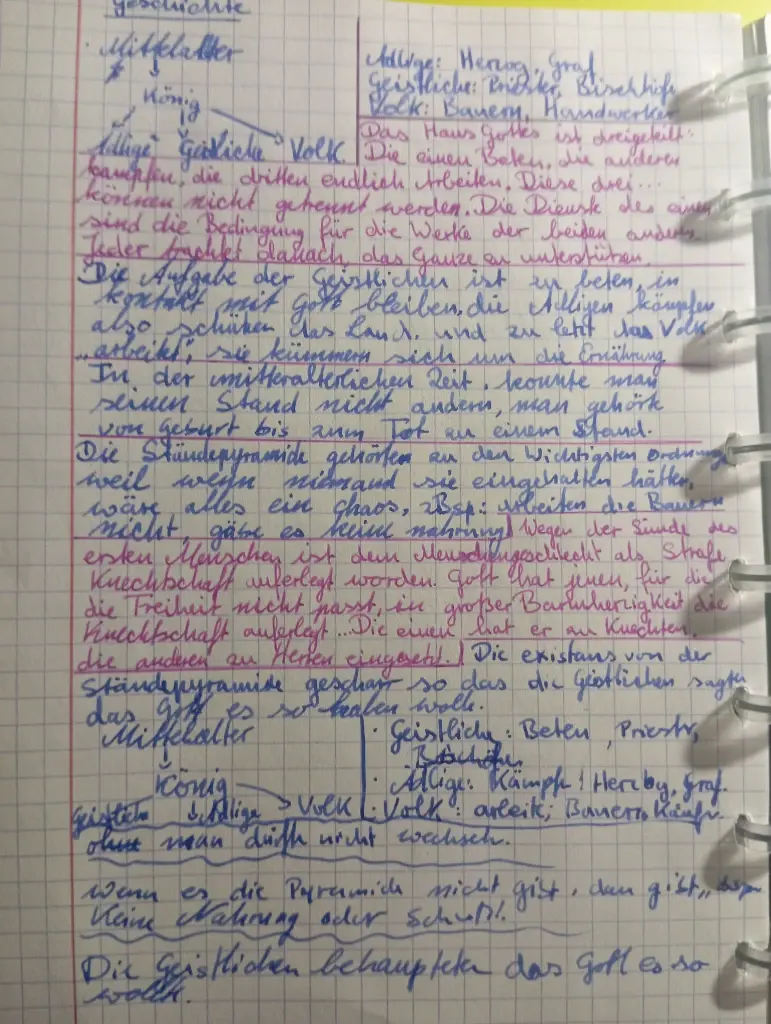 Geschichte
Mittelalter
König
Adlige Geistliche Volk
Adlige: Herzog, Graf
Geistliche: Priester, Bischöfe
Volk: Bauern, Handwerker
Das Haus Gottes ist dreigeteilt:
Die einen Beten, die anderen
kämpfen, die dritten endlich Arbeiten. Diese drei...
können nicht getrennt werden. Die Dienste des einen
sind die Bedingung für die Werke der beiden andern.
Jeder trachtet danach, das Ganze zu unterstützen.
Die Aufgabe der Geistlichen ist zu beten, in
kontakt mit Gott bleiben, die Adligen kämpfen
also schützen das Land, und zu letzt das Volk
„arbeitet", sie kümmern sich um die Ernährung
In der mitteralterlichen Zeit, konnte man
seinen Stand nicht ändern, man gehört
von Geburt bis zum Tot zu einem Stand.
Die Ständepyramide gehörten zu den Wichtigsten ordnung
weil wenn niemand sie eingehalten hätten,
wäre alles ein chaos, zBsp: Arbeiten die Bauern
nicht, gäbe es keine nahrung! Wegen der Sünde des
ersten Menschen ist dem Menschengeschlecht als Strafe
Knechtschaft auferlegt worden. Gott hat jenen, für die
die Freiheit nicht passt, in großer Barmherzigkeit die
Knechtschaft auferlegt... Die einen hat er zu Knechten,
die anderen zu Herren eingesetzt. Die existans von der
Ständepyramide geschah so das die Geistlichen sagten
das Gott es so haben wollte.
Mittelalter
König
Geistliche Adlige Volk
· Geistliche: Beten, Priester,
Bischöfe
· Adlige: Kämpfe! Herzog, Graf.
· Volk: arbeit; Bauern,
man nicht wechseln.
wenn es die Pyramide nicht gibt, dan gibt
Keine Nahrung oder Schutz!
Die Geistlichen behaupteten das Gott es so
wollte.